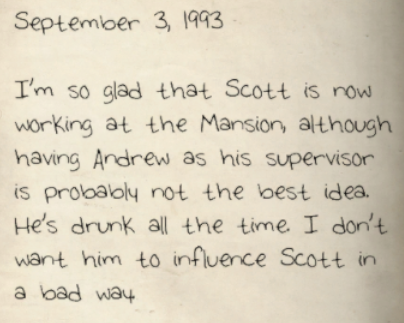 September 3, 1993
I'm so glad that Scott is now
working at the Mansion, although
having Andrew as his supervisor
is probably not the best idea.
He's drunk all the time. I don't
want him to influence Scott in
a bad way